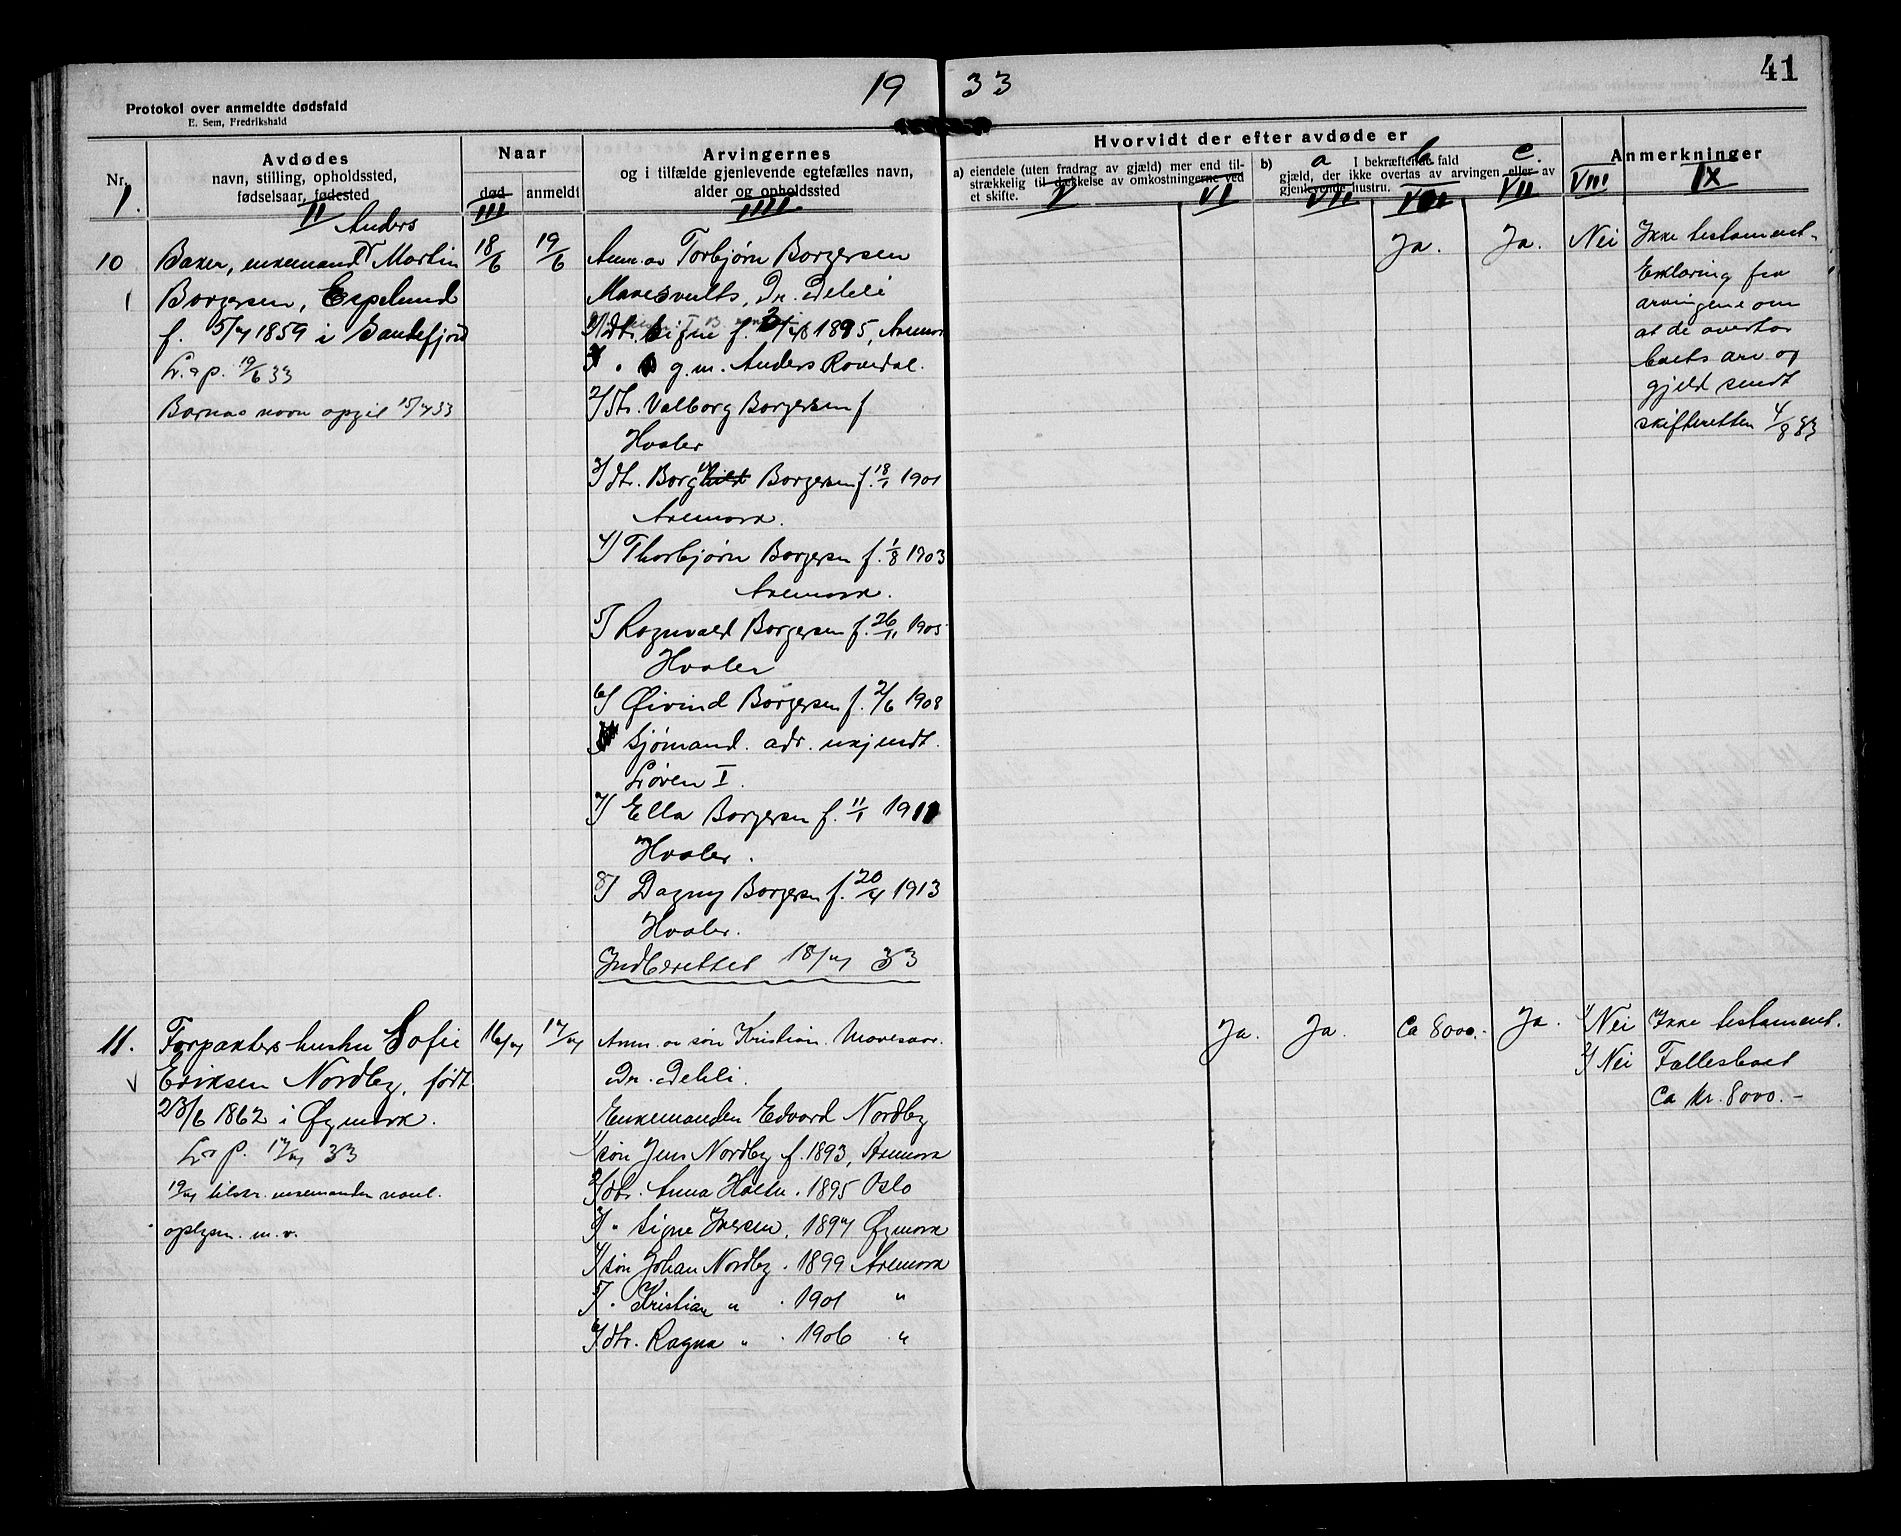 19 33
41
Protokol over anmeldte dødsfald
E. Sem, Fredrikshald
Nr.
1.
Avdødes
navn, stilling, opholdssted,
fødselsaar, fødested
II
Naar
død
III
anmeldt
Arvingernes
og i tilfælde gjenlevende egtefælles navn,
alder og opholdssted
IIII
Hvorvidt der efter avdøde er
a) eiendele (uten fradrag av gjæld) mer end til-
strækkelig til dækkelse av omkostningerne ved
et skifte.
V
VI
b) I bekræftende fald
gjæld, der ikke overtas av arvingen eller av
gjenlevende hustru.
a b c.
VII
VII
VIII
Anmerkninger
IX
10
Anders
Baker, enkemand Martin
Borgersen, Espelund
f. 5/4 1859 i Sandefjord
L. o p. 19/6 33
Barnas navn opgit 15/7 33
18/6
19/6
Anm. av Torbjørn Borgersen
dtr. Signe f. 1895, Aremark
g.m. Anders Rovedal.
2/ dtr. Valborg Borgersen f
Hvaler
3/ dtr. Borghild Borgersen f. 18/1 1901
Aremark.
4/ Thorbjørn Borgersen f. 1/8 1903
Aremark.
5/ Ragnvald Borgersen f. 26/11 1905
Hvaler
6/ Øivind Borgersen f. 2/6 1908
Sjømand. adr. ukjendt.
Løven I.
7/ Ella Borgersen f. 11/1 1911
Hvaler.
8/ Dagny Borgersen f. 20/4 1913
Hvaler.
Indberettet 18/7 33
Ja.
Ja.
Nei
Ikke testament.
Erklæring fra
arvingene om
at de overtar
boets arv og
gjeld sendt
skifteretten 4/8 33
11.
Forpakters hustru Sofie
Eriksen Nordby, født
23/6 1862 i Øymark.
L. o p. 17/7 33
19/7 tilskr. enkemanden navl.
oplysn. m. v.
16/7
17/7
Anm. av søn Kristian.
Enkemanden Edvard Nordby
1/ søn Jens Nordby f. 1893, Aremark
2/ dtr. Anna Holtn. 1895 Oslo
3/ " Signe Iversen. 1897 Øymark
4/ søn Johan Nordby. 1899 Aremark
5/ " Kristian " . 1901 "
6/ dtr. Ragna " . 1906 "
Ja.
Ja.
Ca 8000.-
Ja.
1/ Nei
2/ Nei
Ikke testament.
Fællesboet
Ca kr. 8000.-